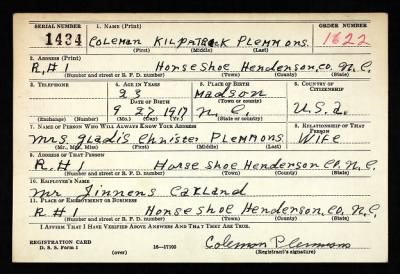 SERIAL NUMBER 1. NAME (Print) ORDER NUMBER
1434 COLEMAN KILPATRICK PLEMMONS. 1622
(First) (Middle) (Last)
2. ADDRESS (Print)
R.#1 Horse Shoe Henderson, Co. N.C.
(Number and street or R. F. D. number) (Town) (County) (State)
3. TELEPHONE 4. AGE IN YEARS 5. PLACE OF BIRTH 6. COUNTRY OF CITIZENSHIP
23 Madson
DATE OF BIRTH (Town or county)
9 27 1917 N.C. U.S.a.
(Exchange) (Number) (Mo.) (Day) (Yr.) (State or country)
7. NAME OF PERSON WHO WILL ALWAYS KNOW YOUR ADDRESS 8. RELATIONSHIP OF THAT PERSON
Mrs. Gladis Christer PLEMMONS Wife
(Mr., Mrs., Miss) (First) (Middle) (Last)
9. ADDRESS OF THAT PERSON
R.#1 Horse Shoe Henderson Co. N.C.
(Number and street or R. F. D. number) (Town) (County) (State)
10. EMPLOYER'S NAME
Mr Jinnens Carland
11. PLACE OF EMPLOYMENT OR BUSINESS
R#1 Horse Shoe Henderson, Co. N.C.
(Number and street or R. F. D. number) (Town) (County) (State)
I AFFIRM THAT I HAVE VERIFIED ABOVE ANSWERS AND THAT THEY ARE TRUE.
REGISTRATION CARD
D. S. S. Form 1 (over) 16—17105 Coleman Plemmons
(Registrant's signature)